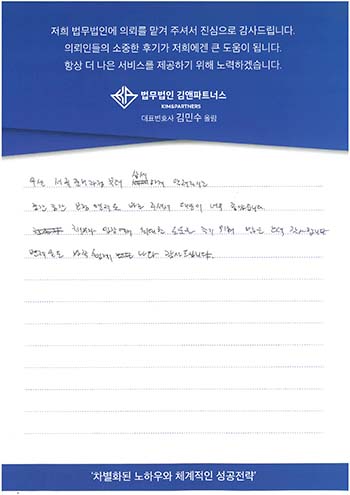 저희 법무법인에 의뢰를 맡겨 주셔서 진심으로 감사드립니다.
의뢰인들의 소중한 후기가 저희에겐 큰 도움이 됩니다.
항상 더 나은 서비스를 제공하기 위해 노력하겠습니다.
법무법인 김앤파트너스
KIM&PARTNERS
대표변호사 김민수 올림
우선 서류 준비과정 부터 상세
중간 중간 진행 바로 주셔서 대응이 너무 좋았습니다
입장에서 주기 위해 많은 노력 감사합니다
감사드립니다.
'차별화된 노하우와 체계적인 성공전략'